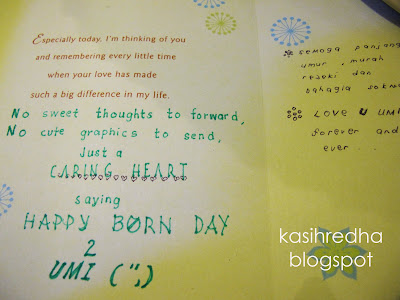 Especially today, I'm thinking of you
and remembering every little time
when your love has made
such a big difference in my life.
No sweet thoughts to forward,
No cute graphics to send,
Just a
CARING HEART
saying
HAPPY BØRN DAY
2
UMI (",)
semoga panjang
umur, murah
rezeki dan
bahagia
LOVE U UMI
forever and
ever...
kasihredha
blogspot